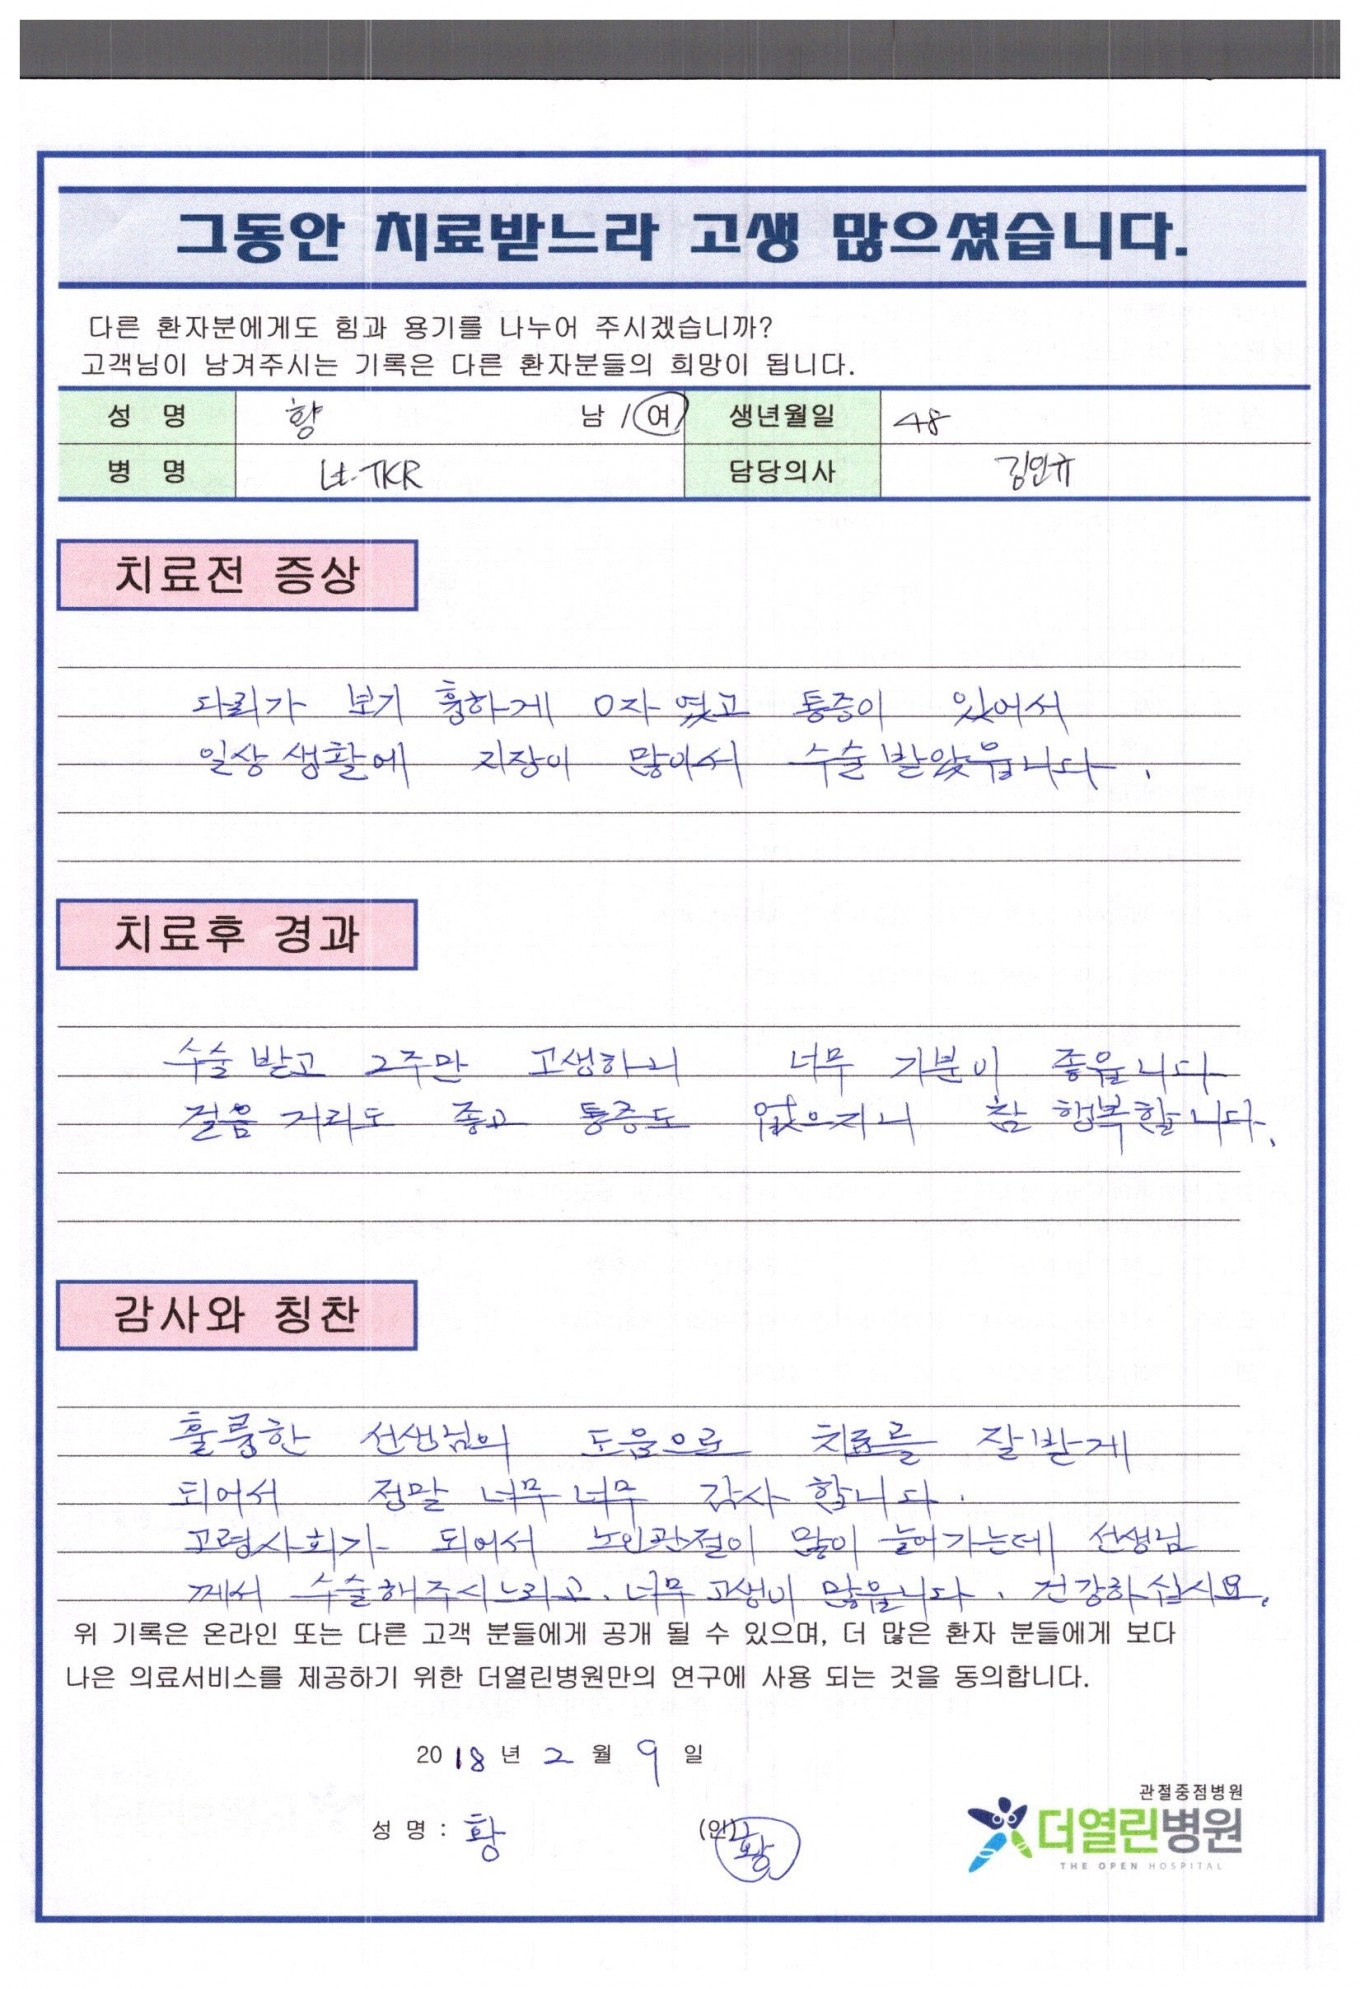 그동안 치료받느라 고생 많으셨습니다.
다른 환자분에게도 힘과 용기를 나누어 주시겠습니까?
고객님이 남겨주시는 기록은 다른 환자분들의 희망이 됩니다.
성 명 황 남 / 여 생년월일 48
병 명 Lt-TKR 담당의사 김인규
치료전 증상
다리가 보기 흉하게 O자 였고 통증이 있어서
일상 생활에 지장이 많아서 수술 받았읍니다.
치료후 경과
수술 받고 2주만 고생하니 너무 기분이 좋읍니다
걸음 거리도 좋고 통증도 없으지니 참 행복합니다.
감사와 칭찬
훌륭한 선생님의 도움으로 치료를 잘받게
되어서 정말 너무 너무 감사 합니다.
고령사회가 되어서 노인관절이 많이 늘어가는데 선생님
께서 수술해주시느라고. 너무 고생이 많읍니다. 건강하십시요.
위 기록은 온라인 또는 다른 고객 분들에게 공개 될 수 있으며, 더 많은 환자 분들에게 보다
나은 의료서비스를 제공하기 위한 더열린병원만의 연구에 사용 되는 것을 동의합니다.
2018년 2월 9일
성 명 : 황 (인) 황
관절중점병원
더열린병원
THE OPEN HOSPITAL